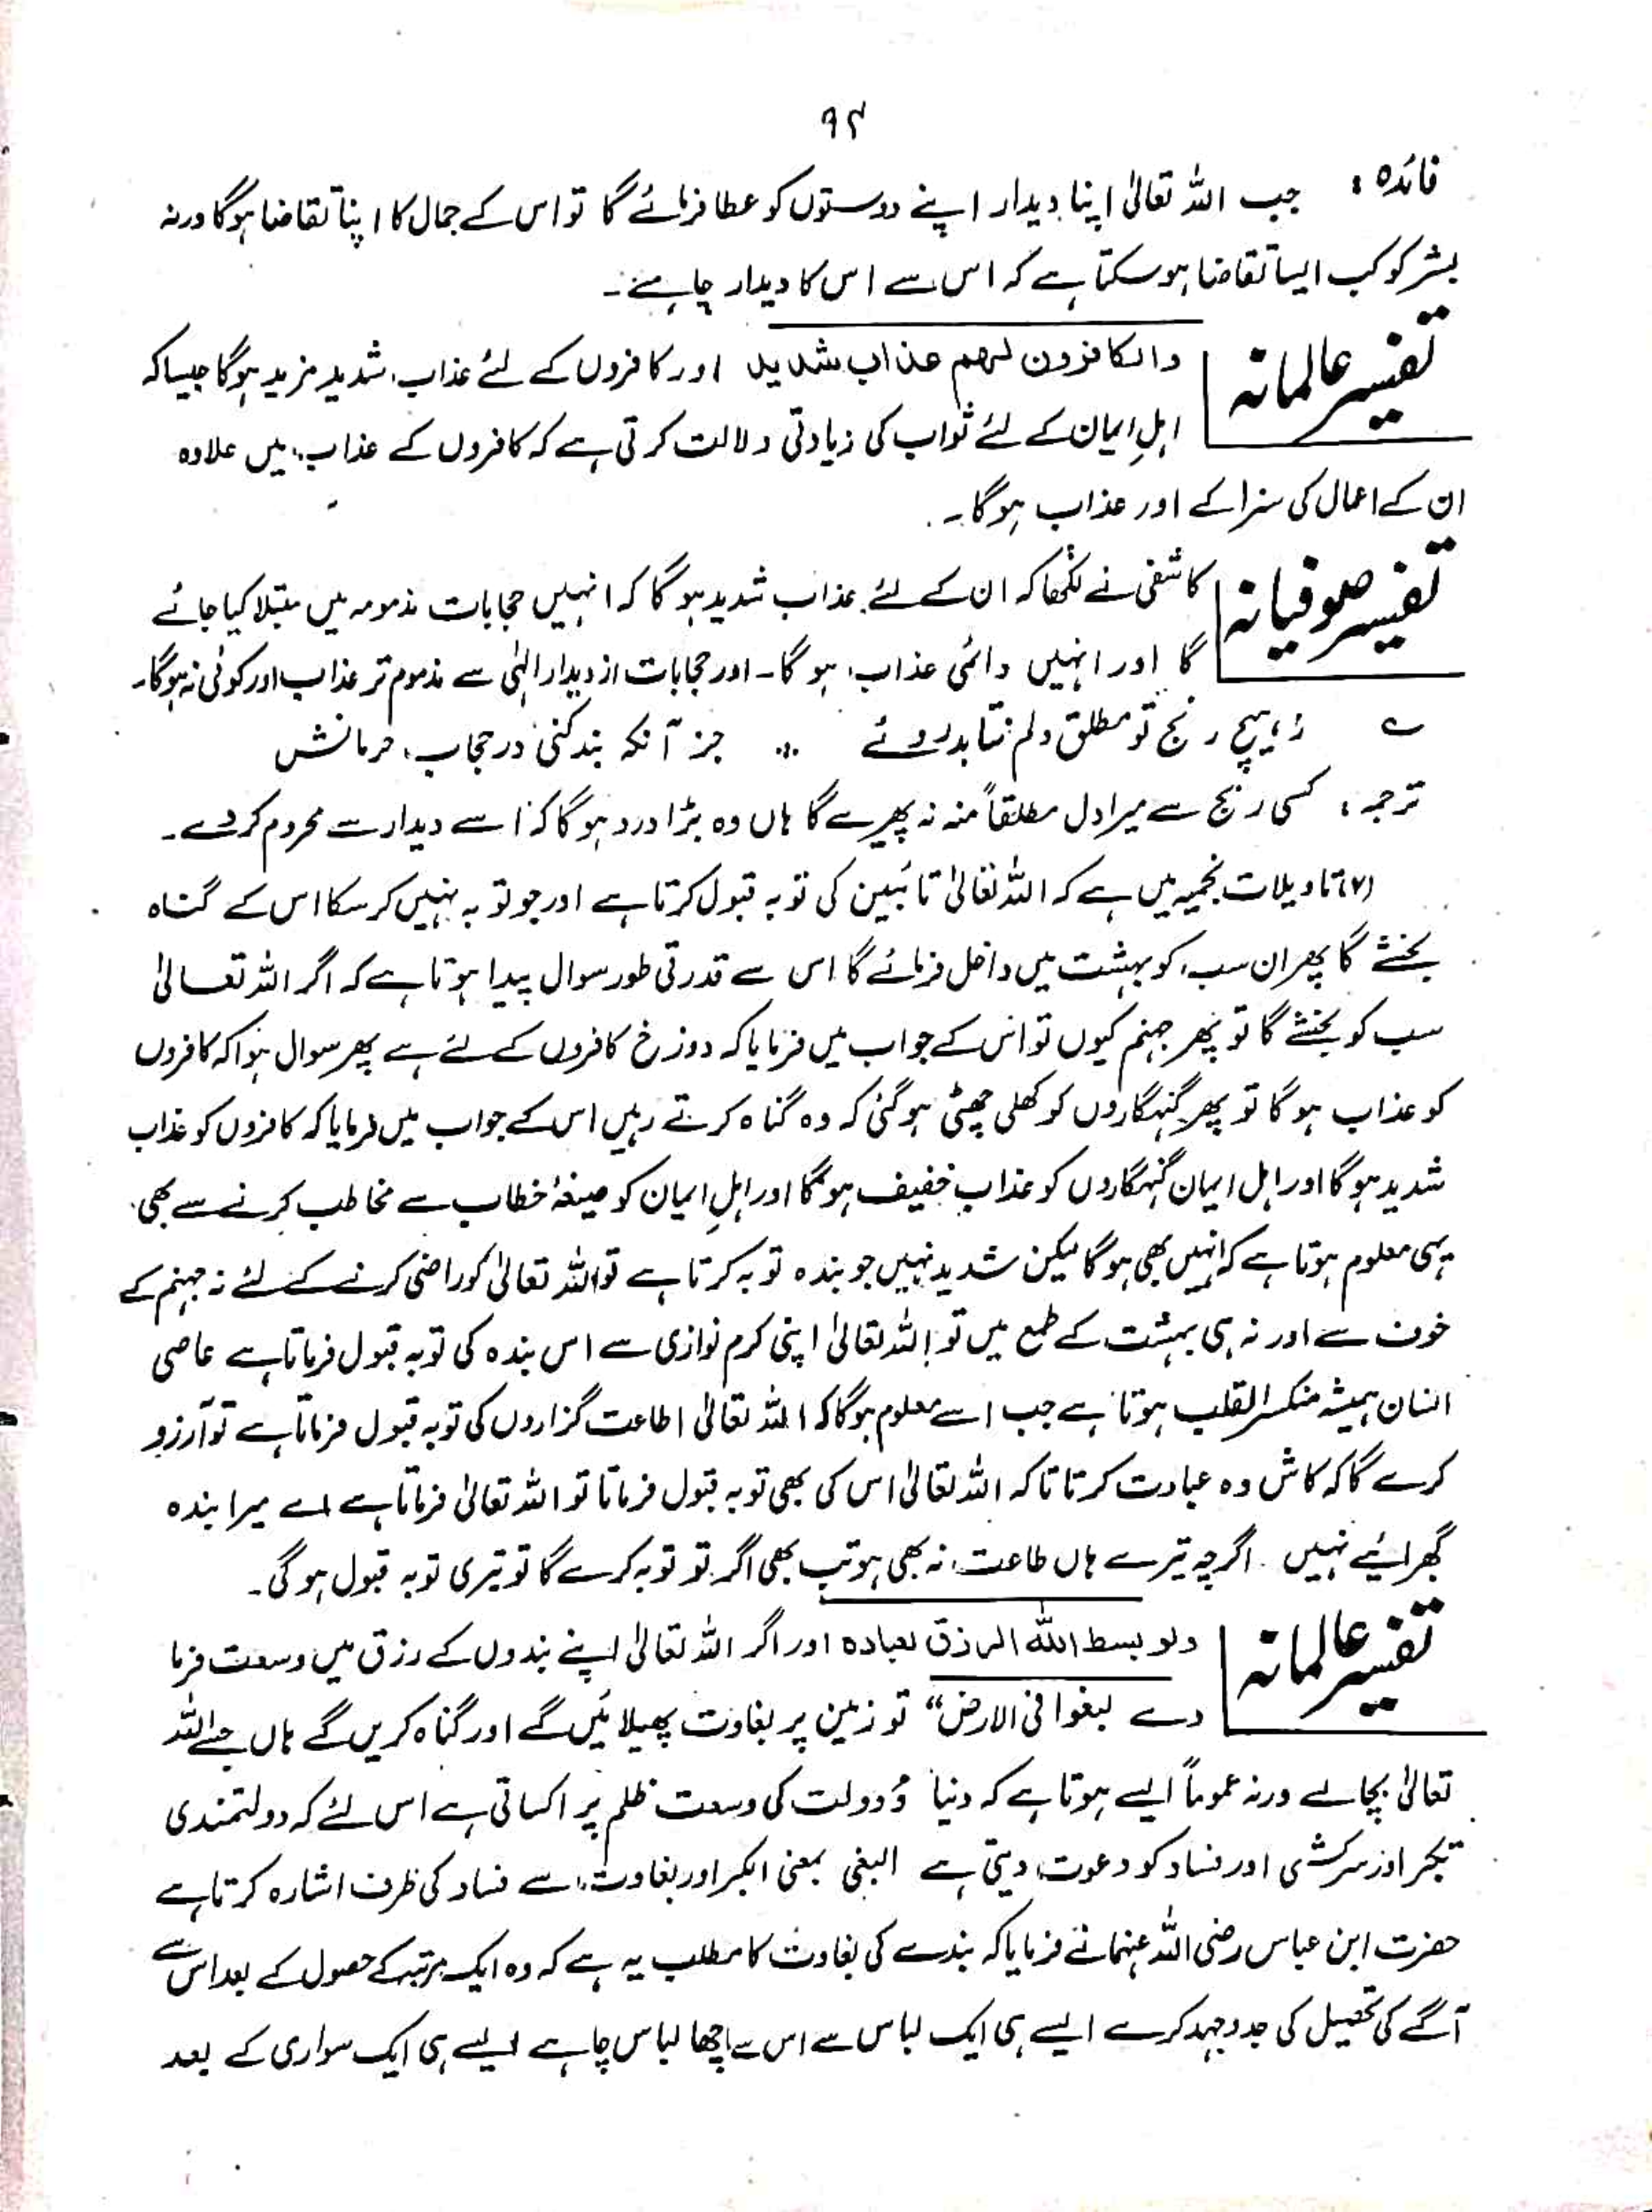 ۹۴
فائدہ : جب اللہ تعالیٰ اپنا دیدار اپنے دوستوں کو عطا فرمائے گا تو اس کے جمال کا اپنا تقاضا ہوگا ورنہ
بشر کو کب ایسا تقاضا ہو سکتا ہے کہ اس سے اس کا دیدار چاہے۔
تفسیر عالمانہ
والکافرون لہم عذاب شدید اور کافروں کے لئے عذاب شدید مزید ہوگا جیسا کہ
اہلِ ایمان کے لئے ثواب کی زیادتی دلالت کرتی ہے کہ کافروں کے عذاب میں علاوہ
ان کے اعمال کی سزا کے اور عذاب ہوگا۔
تفسیر صوفیانہ
کاشفی نے لکھا کہ ان کے لئے عذاب شدید ہوگا کہ انہیں حجابات مذمومہ میں مبتلا کیا جائے
گا اور انہیں دائمی عذاب ہو گا۔ اور حجابات از دیدار الٰہی سے مذموم تر عذاب اور کوئی نہ ہوگا۔
ے زہیچ رنج تو مطلق دلم نتابد روئے ∴ جز آنکہ بند کنی در حجاب حرمانش
ترجمہ : کسی رنج سے میرا دل مطلقاً منہ نہ پھیرے گا ہاں وہ بڑا درد ہوگا کہ اسے دیدار سے محروم کر دے۔
(۷) تاویلات نجمیہ میں ہے کہ اللہ تعالیٰ تائبین کی توبہ قبول کرتا ہے اور جو توبہ نہیں کر سکا اس کے گناہ
بخشے گا پھر ان سب کو بہشت میں داخل فرمائے گا اس سے قدرتی طور سوال پیدا ہوتا ہے کہ اگر اللہ تعالیٰ
سب کو بخشے گا تو پھر جہنم کیوں تو اس کے جواب میں فرمایا کہ دوزخ کافروں کے لئے ہے پھر سوال ہوا کہ کافروں
کو عذاب ہو گا تو پھر گنہگاروں کو کھلی چھٹی ہو گئی کہ وہ گناہ کرتے رہیں اس کے جواب میں فرمایا کہ کافروں کو عذاب
شدید ہوگا اور اہل ایمان گنہگاروں کو عذاب خفیف ہوگا اور اہلِ ایمان کو صیغۂ خطاب سے مخاطب کرنے سے بھی
یہی معلوم ہوتا ہے کہ انہیں بھی ہوگا لیکن شدید نہیں جو بندہ توبہ کرتا ہے تو اللہ تعالیٰ کو راضی کرنے کے لئے نہ جہنم کے
خوف سے اور نہ ہی بہشت کے طمع میں تو اللہ تعالیٰ اپنی کرم نوازی سے اس بندہ کی توبہ قبول فرماتا ہے عاصی
انسان ہمیشہ منکسر القلب ہوتا ہے جب اسے معلوم ہوگا کہ اللہ تعالیٰ اطاعت گزاروں کی توبہ قبول فرماتا ہے تو آرزو
کرے گا کہ کاش وہ عبادت کرتا تاکہ اللہ تعالیٰ اس کی بھی توبہ قبول فرماتا تو اللہ تعالیٰ فرماتا ہے اے میرا بندہ
گھبرائیے نہیں ۔ اگرچہ تیرے ہاں طاعت نہ بھی ہو تب بھی اگر تو توبہ کرے گا تو تیری توبہ قبول ہو گی۔
تفسیر عالمانہ
ولو بسط اللہ الرزق لعبادہ اور اگر اللہ تعالیٰ اپنے بندوں کے رزق میں وسعت فرما
دے لبغوا فی الارض“ تو زمین پر بغاوت پھیلائیں گے اور گناہ کریں گے ہاں جسے اللہ
تعالیٰ بچالے ورنہ عموماً ایسے ہوتا ہے کہ دنیا و دولت کی وسعت ظلم پر اکساتی ہے اس لئے کہ دولتمندی
تکبر اور سرکشی اور فساد کو دعوت دیتی ہے البغی بمعنی الکبر اور بغاوت سے فساد کی طرف اشارہ کرتا ہے
حضرت ابن عباس رضی اللہ عنہما نے فرمایا کہ بندے کی بغاوت کا مطلب یہ ہے کہ وہ ایک مرتبہ کے حصول کے بعد اس سے
آگے کی تحصیل کی جدوجہد کرے ایسے ہی ایک لباس سے اس سے اچھا لباس چاہے ایسے ہی ایک سواری کے بعد